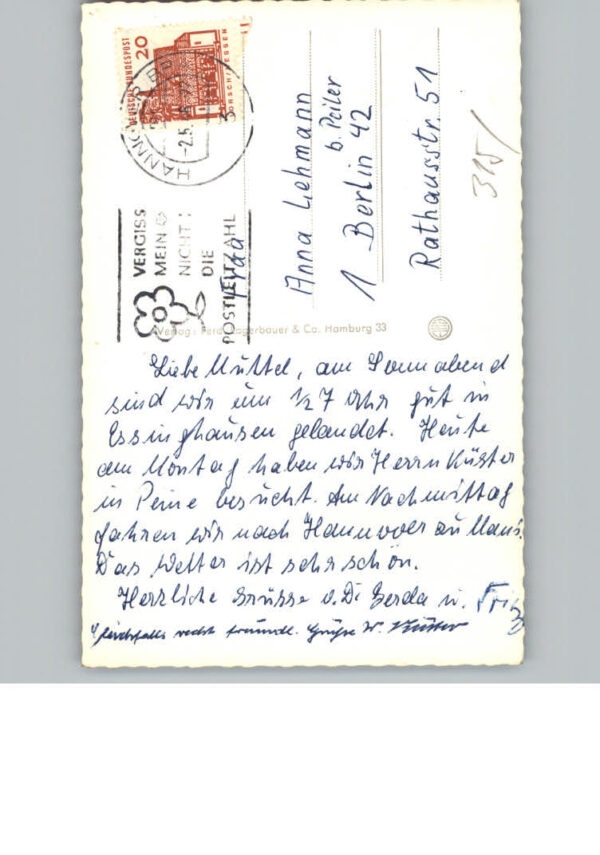 DEUTSCHE BUNDESPOST
20
LORSCH/HESSEN
HANNOVER
-2.5.66
3
VERGISS
MEIN
NICHT:
DIE
POSTLEITZAHL
Frau
Anna Lehmann
b. Peiler
1 Berlin 42
Rathausstr. 51
315/
Verlag: Ferd. Lagerbauer & Co. Hamburg 33
Liebe Muttel, am Sonnabend
sind wir um ½7 Uhr gut in
Essinghausen gelandet. Heute
am Montag haben wir Herrn Küster
in Peine besucht. Am Nachmittag
fahren wir nach Hannover zu Hans.
Das Wetter ist sehr schön.
Herzliche Grüsse v. Di Gerda u. Fritz
Gleichfalls recht freundl. Grüße W. Küster